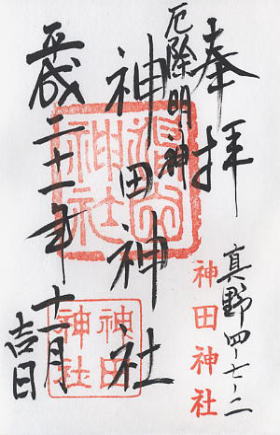 奉拝
真野四-七-二
神田神社
厄除明神
神田神社
神田
神社
平成二十一年十一月
吉日